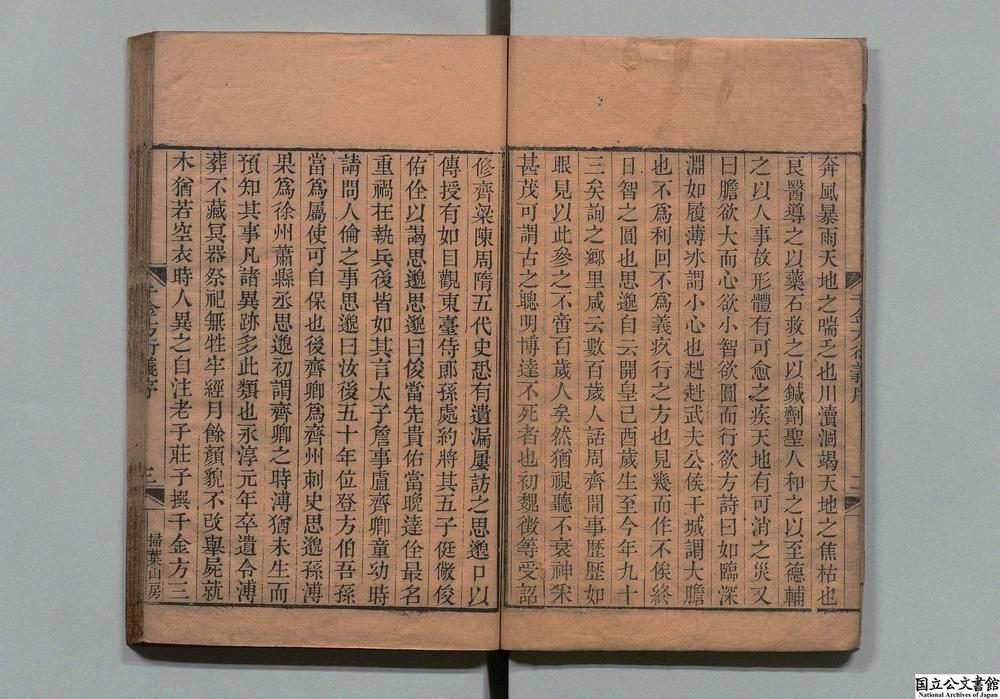 奔風暴雨天地之喘乏也川瀆涸竭天地之焦枯也
良醫導之以藥石救之以鍼劑聖人和之以至德輔
之以人事故形體有可愈之疾天地有可消之災又
曰膽欲大而心欲小智欲圓而行欲方詩曰如臨深
淵如履薄冰謂小心也赳赳武夫公侯干城謂大膽
也不爲利回不爲義疚行之方也見幾而作不俟終
日智之圓也思邈自云開皇己酉歲生至今年九十
三矣詢之鄉里咸云數百歲人話周齊閒事歷歷如
眼見以此參之不啻百歲人矣然猶視聽不衰神采
甚茂可謂古之聰明博達不死者也初魏徵等受詔
修齊梁陳周隋五代史恐有遺漏屢訪之思邈口以
傳授有如目觀東臺侍郎孫處約將其五子侹儆俊
佑佺以謁思邈思邈曰俊當先貴佑當晚達佺最名
重禍在執兵後皆如其言太子詹事盧齊卿童幼時
請問人倫之事思邈曰汝後五十年位登方伯吾孫
當爲屬使可自保也後齊卿爲齊州刺史思邈孫溥
果爲徐州蕭縣丞思邈初謂齊卿之時溥猶未生而
預知其事凡諸異跡多此類也永淳元年卒遺令薄
葬不藏冥器祭祀無牲牢經月餘顏貌不改舉屍就
木猶若空衣時人異之自注老子莊子撰千金方三
千金方衍義序
三
掃葉山房
国立公文書館
National Archives of Japan